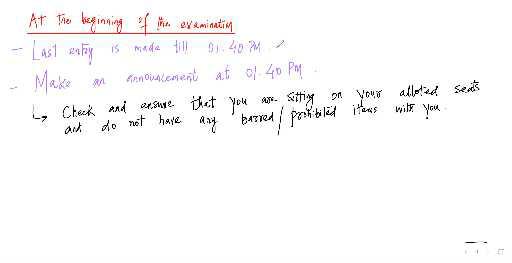 At the beginning of the examination
- Last entry is made till 01.40 PM.
- Make an announcement at 01.40 PM.
↳ Check and ensure that you are sitting on your alloted seats
and do not have any barred/prohibited items with you.